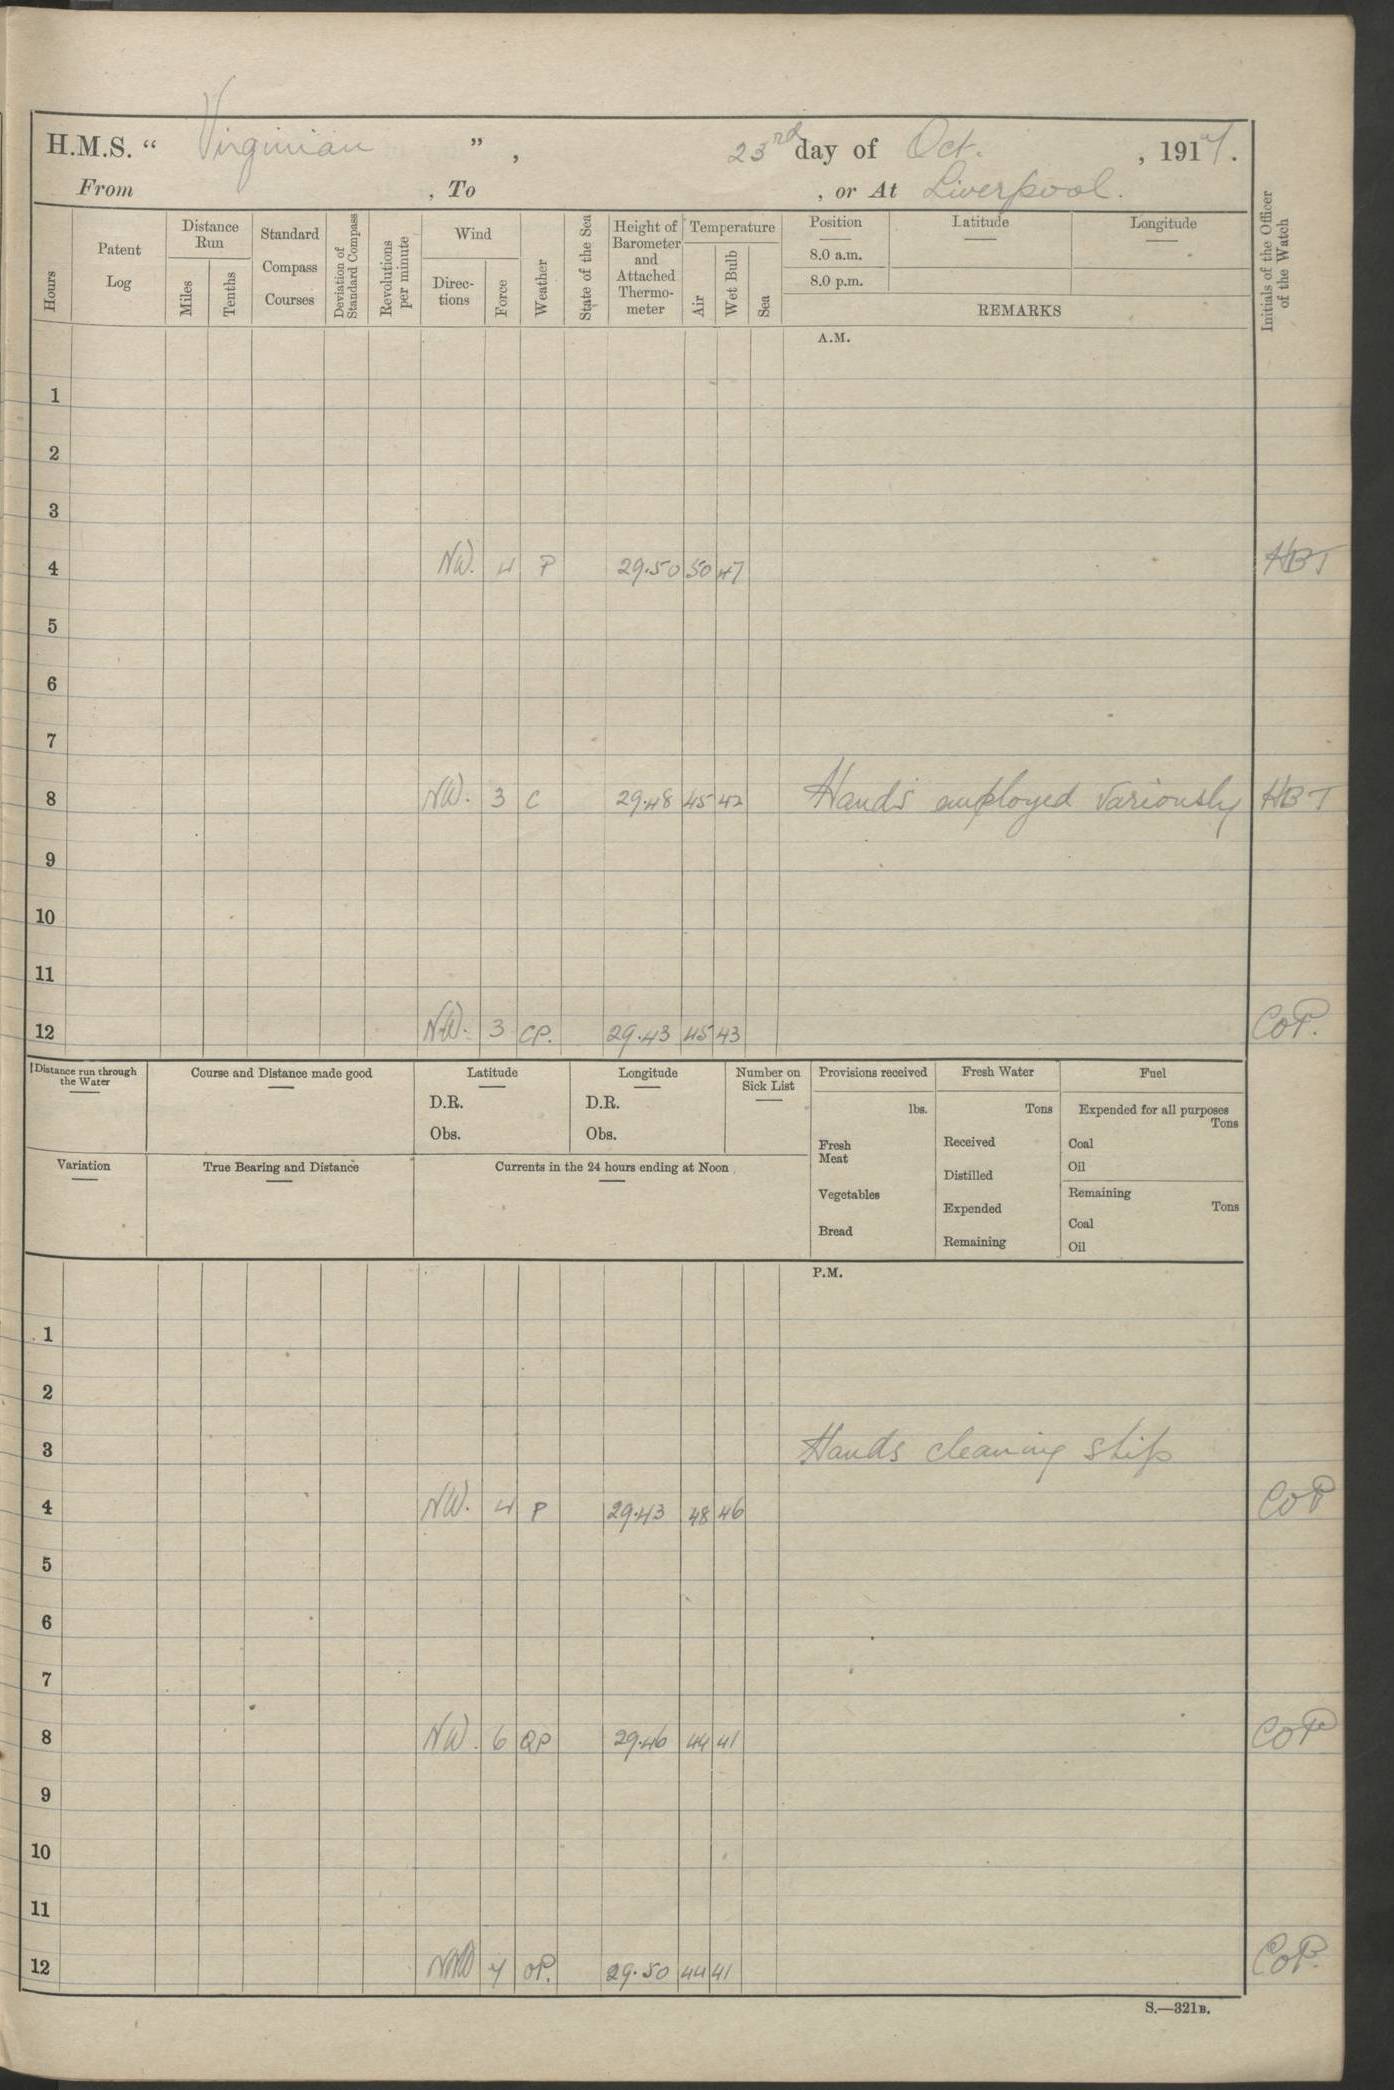 H.M.S. “ Virginian ” , 23rd day of Oct. , 1917.
From , To , or At Liverpool.
Hours
Patent Log
Distance Run
Miles
Tenths
Standard Compass Courses
Deviation of Standard Compass
Revolutions per minute
Wind
Directions
Force
Weather
State of the Sea
Height of Barometer and Attached Thermometer
Temperature
Air
Wet Bulb
Sea
Position
8.0 a.m.
8.0 p.m.
Latitude
Longitude
REMARKS
Initials of the Officer of the Watch
A.M.
1
2
3
4 NW. 4 P 29.50 50 47 HBT
5
6
7
8 NW. 3 C 29.48 45 42 Hands employed variously HBT
9
10
11
12 NW. 3 CP. 29.43 45 43 COP.
Distance run through the Water
Course and Distance made good
Latitude
D.R.
Obs.
Longitude
D.R.
Obs.
Number on Sick List
Variation
True Bearing and Distance
Currents in the 24 hours ending at Noon
Provisions received
lbs.
Fresh Meat
Vegetables
Bread
Fresh Water
Tons
Received
Distilled
Expended
Remaining
Fuel
Expended for all purposes
Tons
Coal
Oil
Remaining
Tons
Coal
Oil
P.M.
1
2
3 Hands cleaning ship
4 NW. 4 P 29.43 48 46 COP
5
6
7
8 NW. 6 QP 29.46 44 41 COP
9
10
11
12 NNW 7 OP. 29.50 44 41 COP.
S.—321B.